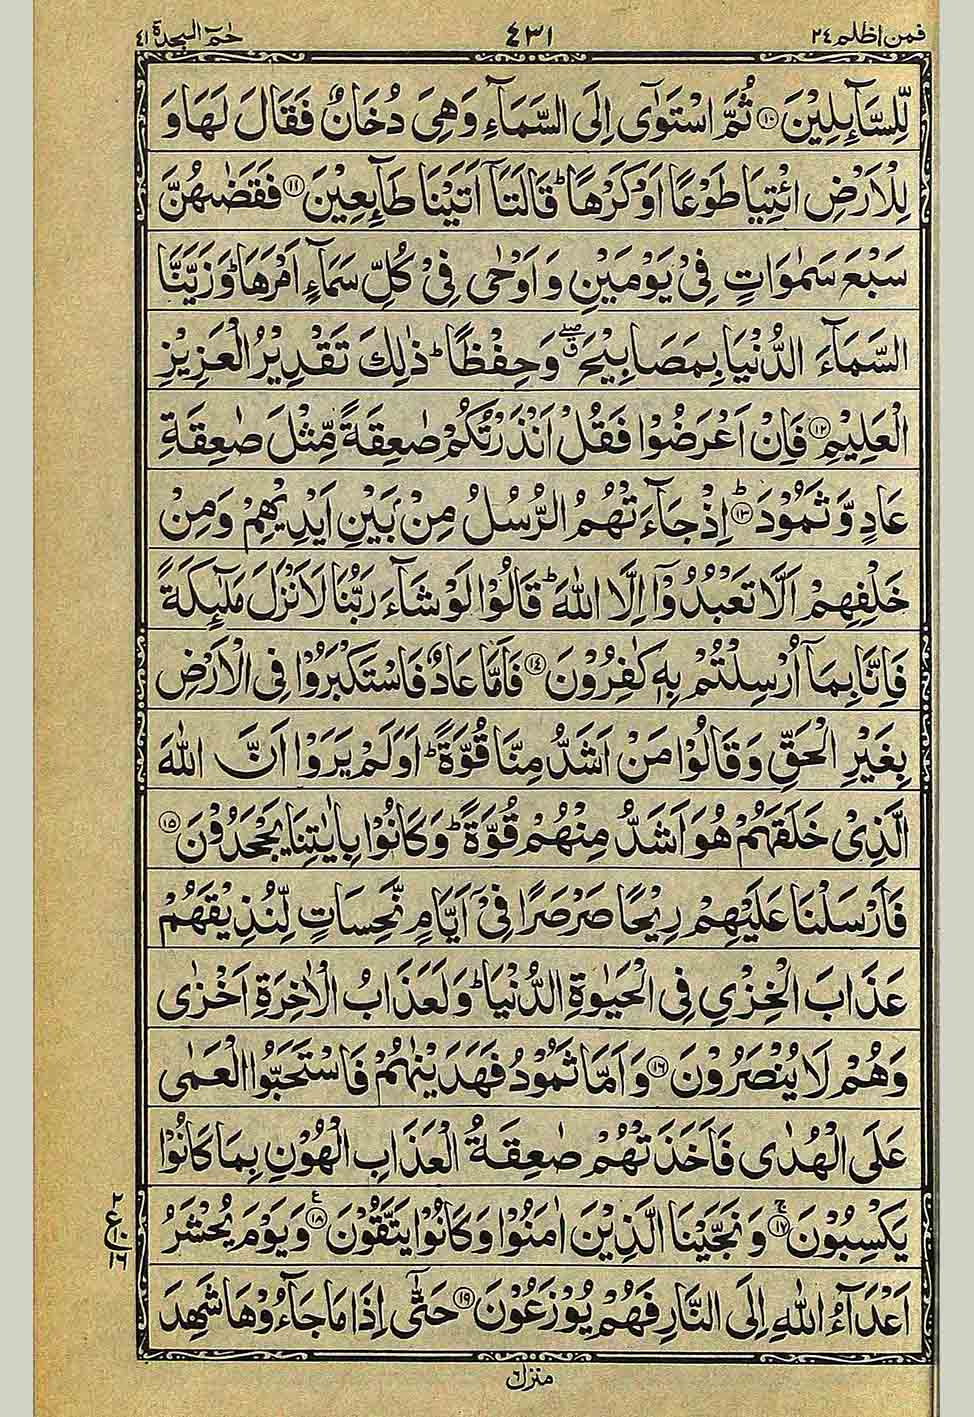 فمن اظلم ٢٤ ٤٣١ حٰمٓ السجدة ٤١
لِّلسَّآئِلِيْنَ ⑩ ثُمَّ اسْتَوٰٓى اِلَى السَّمَآءِ وَهِىَ دُخَانٌ فَقَالَ لَهَا وَ
لِلْاَرْضِ ائْتِيَا طَوْعًا اَوْ كَرْهًا ؕ قَالَتَاۤ اَتَيْنَا طَآئِعِيْنَ ⑪ فَقَضٰىهُنَّ
سَبْعَ سَمٰوَاتٍ فِىْ يَوْمَيْنِ وَ اَوْحٰى فِىْ كُلِّ سَمَآءٍ اَمْرَهَا ؕ وَ زَيَّنَّا
السَّمَآءَ الدُّنْيَا بِمَصَابِيْحَ ۖ ق وَحِفْظًا ؕ ذٰلِكَ تَقْدِيْرُ الْعَزِيْزِ
الْعَلِيْمِ ⑫ فَاِنْ اَعْرَضُوْا فَقُلْ اَنْذَرْتُكُمْ صٰعِقَةً مِّثْلَ صٰعِقَةِ
عَادٍ وَّ ثَمُوْدَ ⑬ؕ اِذْ جَآءَتْهُمُ الرُّسُلُ مِنْۢ بَيْنِ اَيْدِيْهِمْ وَمِنْ
خَلْفِهِمْ اَلَّا تَعْبُدُوْۤا اِلَّا اللّٰهَ ؕ قَالُوْا لَوْ شَآءَ رَبُّنَا لَاَنْزَلَ مَلٰٓئِكَةً
فَاِنَّا بِمَاۤ اُرْسِلْتُمْ بِهٖ كٰفِرُوْنَ ⑭ فَاَمَّا عَادٌ فَاسْتَكْبَرُوْا فِى الْاَرْضِ
بِغَيْرِ الْحَقِّ وَقَالُوْا مَنْ اَشَدُّ مِنَّا قُوَّةً ؕ اَوَلَمْ يَرَوْا اَنَّ اللّٰهَ
الَّذِىْ خَلَقَهُمْ هُوَ اَشَدُّ مِنْهُمْ قُوَّةً ؕ وَكَانُوْا بِاٰيٰتِنَا يَجْحَدُوْنَ ⑮
فَاَرْسَلْنَا عَلَيْهِمْ رِيْحًا صَرْصَرًا فِىْۤ اَيَّامٍ نَّحِسَاتٍ لِّنُذِيْقَهُمْ
عَذَابَ الْخِزْىِ فِى الْحَيٰوةِ الدُّنْيَا ؕ وَلَعَذَابُ الْاٰخِرَةِ اَخْزٰى
وَهُمْ لَا يُنْصَرُوْنَ ⑯ وَاَمَّا ثَمُوْدُ فَهَدَيْنٰهُمْ فَاسْتَحَبُّوا الْعَمٰى
عَلَى الْهُدٰى فَاَخَذَتْهُمْ صٰعِقَةُ الْعَذَابِ الْهُوْنِ بِمَا كَانُوْا
يَكْسِبُوْنَ ⑰ۚ وَ نَجَّيْنَا الَّذِيْنَ اٰمَنُوْا وَكَانُوْا يَتَّقُوْنَ ⑱ ع وَيَوْمَ يُحْشَرُ
٢ ع ١٠ ١٦
اَعْدَآءُ اللّٰهِ اِلَى النَّارِ فَهُمْ يُوْزَعُوْنَ ⑲ حَتّٰٓى اِذَا مَا جَآءُوْهَا شَهِدَ
منزل ٦